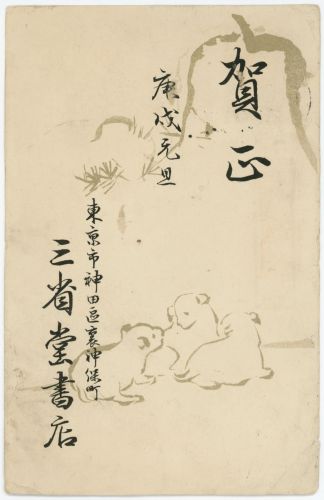 賀正
庚戌元旦
東京市神田区裏神保町
三省堂書店